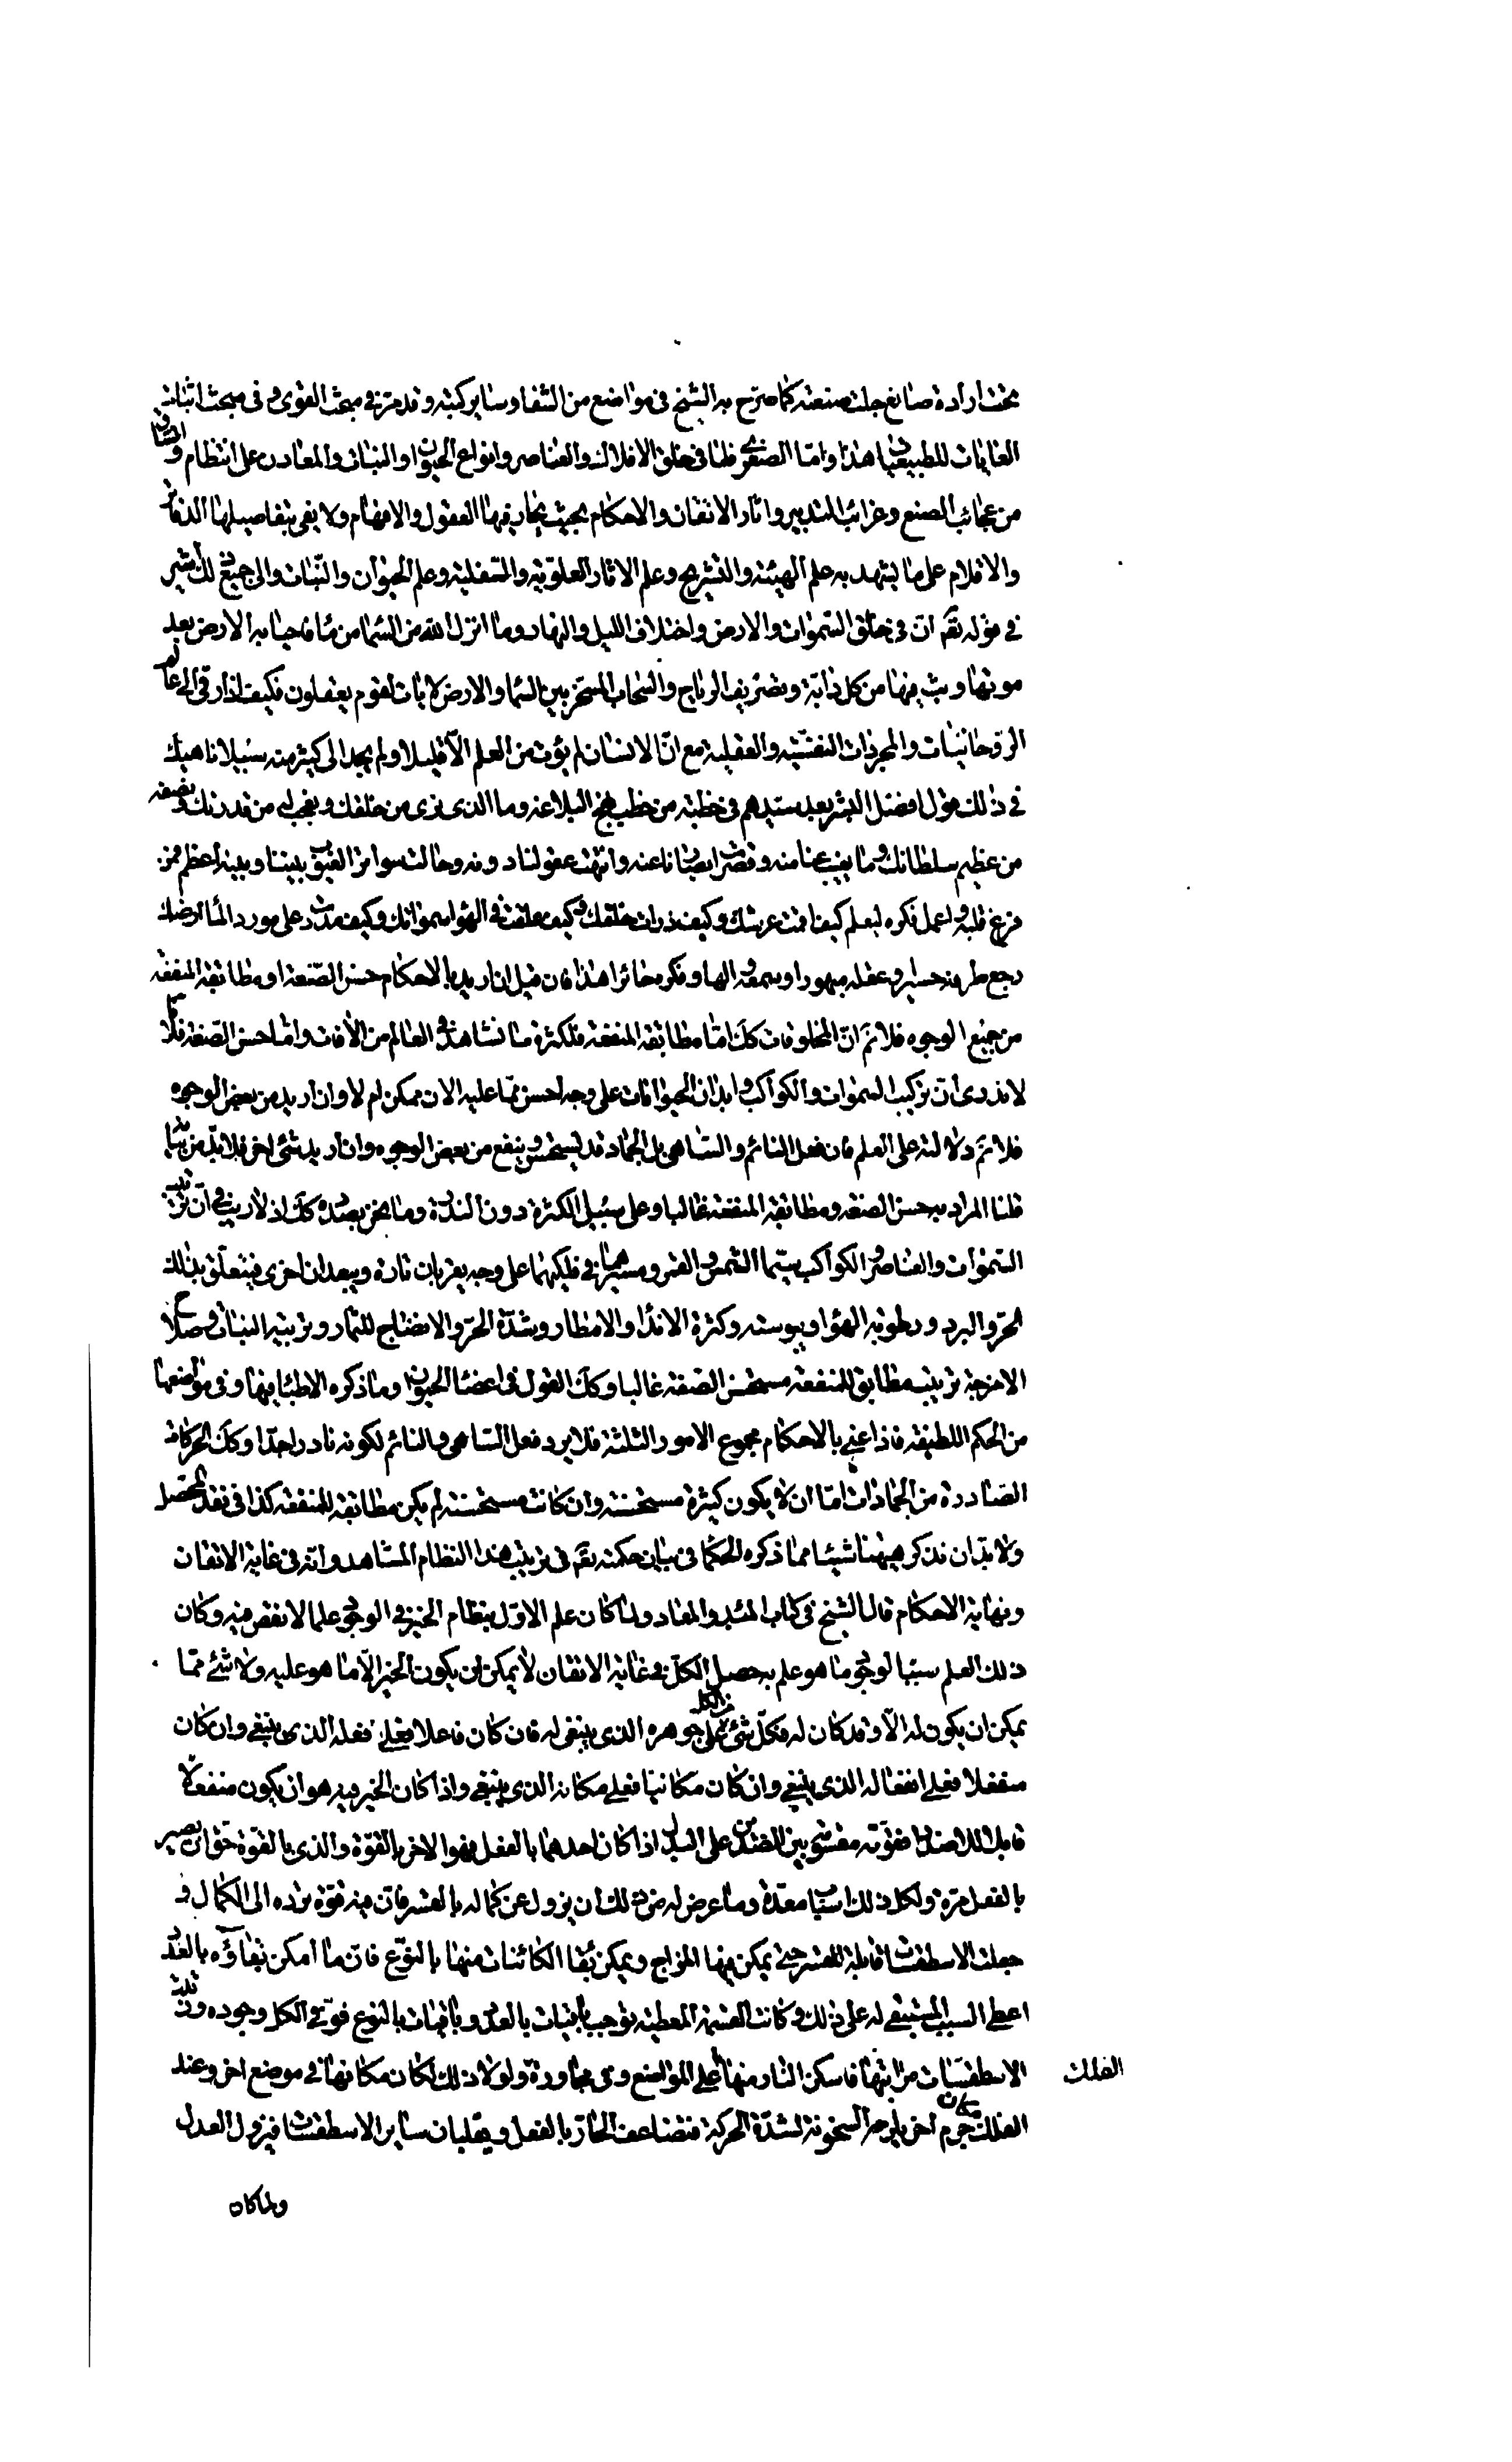 تحت ارادة صانع جلت صنعته كما صرح به الشيخ فى مواضع من الشفا وساير كتبه وقد مر فى مبحث القوى وفى مبحث اثبات
الغايات للطبيعيات هذا واما الصغرى فلما فى خلق الافلاك والعناصر وانواع الحيوان والنبات والمعادن على انتظام واتساق
من عجائب الصنع وغرائب التدبير واثار الاتقان والاحكام بحيث يحار فيها العقول والافهام ولا يفى بتفاصيلها الدفاتر
والاقلام على ما يشهد به علم الهيئة والتشريح وعلم الاثار العلوية والسفلية وعلم الحيوان والنبات والى جميع ذلك اشير
فى قوله تعم ان فى خلق السموات والارض واختلاف الليل والنهار وما انزل الله من السما من ماء فاحيا به الارض بعد
موتها وبث فيها من كل دابة وتصريف الرياح والسحاب المسخر بين السما والارض لايات لقوم يعقلون فكيف اذا رقى الى عالم
الروحانيات والمجردات النفسية والعقلية مع ان الانسان لم يؤت من العلم الا قليلا ولم يجد الى كثير منه سبيلا ناهيك
فى ذلك قول افضل البشر بعد سيدهم فى خطبة من خطب نهج البلاغه وما الذى نرى من خلقك ونعجب له من قدرتك ونصفه
من عظيم سلطانك وما يغيب عنا منه وقصرت ابصارنا عنه وانتهت عقولنا دونه وحالت سواتر الغيوب بيننا وبينه اعظم فمن
فرغ قلبه واعمل فكره ليعلم كيف اقمت عرشك وكيف ذرات خلقك وكيف علقت فى الهوا سمواتك وكيف مددت على مور الماء ارضك
رجع طرفه حسيرا وعقله مبهورا وسمعه والها وفكره حائرا هذا فان قيل ان اريد بالاحكام حسن الصنعة او مطابقة المنفعة
من جميع الوجوه فلانم ان المخلوقات كك اما مطابقة المنفعة فلكثرة ما نشاهد فى العالم من الآفات واما حسن الصنعة فلانا
لا ندرى ان تركيب السموات والكواكب وابدان الحيوانات على وجه احسن مما عليه الان ممكن ام لا وان اريد من بعض الوجوه
فلانم دلالته على العلم فان فعل النائم والساهى بل الجماد قد يستحسن وينفع من بعض الوجوه وان اريد شئ اخر فلابد من بيانه
قلنا المراد به حسن الصنعة ومطابقة المنفعة غالبا وعلى سبيل الكثرة دون الندرة وما نحن بصدده كك اذ لا ريب فى ان ترتيب
السموات والعناصر والكواكب سيما الشمس والقمر ومسيرهما فى فلكيهما على وجه يقربان تارة ويبعدان اخرى فيتعلق بذلك
الحر والبرد ورطوبة الهوا ويبوسته وكثرة الاندا والامطار وشدة الحر والانضاج للثمار وتربية النبات وصلاح
الامزجة ترتيب مطابق للمنفعة مستحسن الصنعة غالبا وكك القول فى اعضا الحيوان وما ذكره الاطبا فيها وفى مواضعها
من الحكم اللطيفة فاذا عنى بالاحكام مجموع الامور الثلثة فلا يرد فعل الساهى والنائم لكونه نادرا جدا وكك الحركات
الصادرة من الجمادات اما ان لا يكون كثيرة مستحسنة وان كانت مستحسنة لم يكن مطابقة للمنفعة كذا فى نقد المحصل
ولابد ان نذكر ههنا شيئا مما ذكره الحكما فى بيان حكمته تعم فى ترتيب هذا النظام المشاهد وانه فى غاية الاتقان
ونهاية الاحكام قال الشيخ فى كتاب المبدء والمعاد ولما كان علم الاول بنظام الخير فى الوجود علما لا نقص فيه وكان
ذلك العلم سببا لوجود ما هو علم به حصل الكل فى غاية الاتقان لا يمكن ان يكون الخير الا ما هو عليه ولا شئ مما
يمكن ان يكون له الا وقد كان له فكل شئ من الكل على جوهره الذى ينبغى له فان كان فاعلا فعلى فعله الذى ينبغى وان كان
منفعلا فعلى انفعاله الذى ينبغى وان كان مكانيا فعلى مكانه الذى ينبغى واذا كان الخير فيه هو ان يكون منفعلا
قابلا للاضداد فقوته مقسومة بين الضدين على البدل اذا كان احدهما بالفعل فهو الاخر بالقوة والذى بالقوة حق ان يصير
بالفعل مرة ولكل ذلك اسباب معدة وما عرض له من ذلك ان يزول عن كماله بالقسر فان فيه قوة ترده الى الكمال و
جعلت الاسطقسات قابلة للقسر حتى يمكن فيها المزاج ويمكن بقا الكائنات منها بالنوع فان ما امكن بقاؤه بالعدد
اعطى السبب المستبقى له على ذلك وكانت القسمة العقلية توجب باقيات بالعدد وباقيات بالنوع فوفى الكل وجوده ورتبت
الاسطقسات مراتبها فاسكن النار منها اعلى المواضع وفى مجاورة ولولا ذلك لكان مكانها فى موضع اخر وعند
الفلك
الفلك مكان جرم اخر يلزمه السخونة لشدة الحركة فتضاعف الحار بالفعل ويغلبان ساير الاسطقسات فيزول العدل
ولما كان